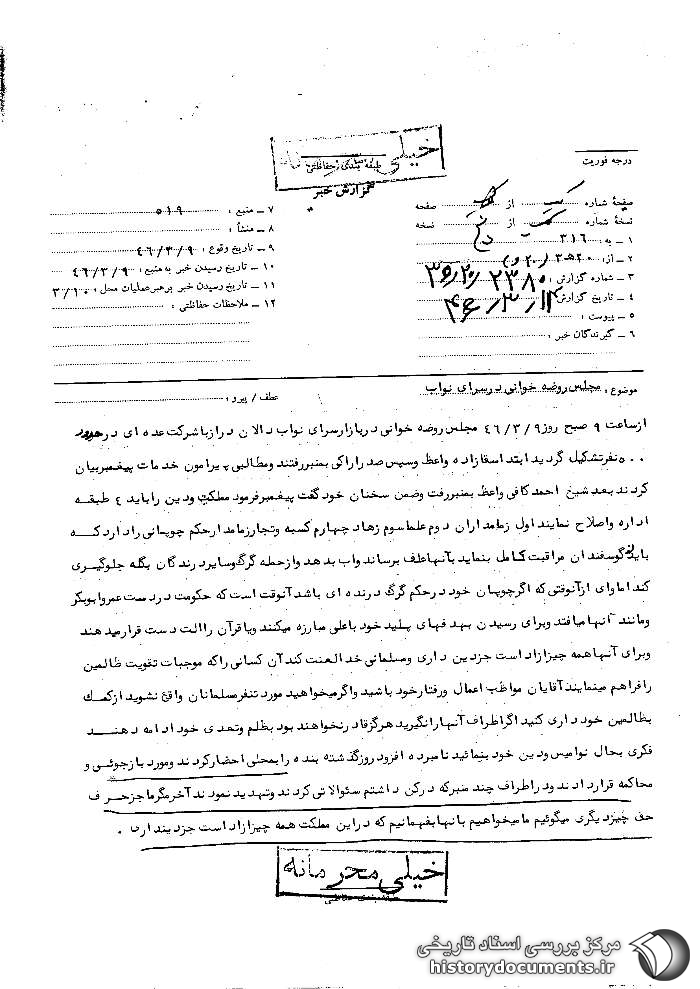 خیلی
طبقه بندی حفاظتی
گزارش خبر
درجه فوریت
صفحه شماره یک از یک صفحه
نسخه شماره از نسخه
۱ ـ به : ۳۱۶
۲ ـ از : ۲۰ﻫ۳
۳ ـ شماره گزارش : ۲۳۸۰
۴ ـ تاریخ گزارش
۵ ـ پیوست :
۶ ـ گیرندگان خبر :
۷ ـ منبع : ۵۱۹
۸ ـ منشأ :
۹ ـ تاریخ وقوع : ۴۶/۳/۹
۱۰ ـ تاریخ رسیدن خبر به منبع : ۴۶/۳/۹
۱۱ ـ تاریخ رسیدن خبر برهبرعملیات محل : ۳/۱۰
۱۲ ـ ملاحظات حفاظتی :
موضوع : مجلس روضه خوانی درسرای نواب
عطف / پیرو :
ازساعت ۹ صبح روز ۴۶/۳/۹ مجلس روضه خوانی دربازارسرای نواب دالان درازباشرکت عده ای درحدود
نفرتشکیل گردید ابتدا سقازاده واعظ وسپس صدراراکی بمنبررفتند ومطالبی پیرامون خدمات پیغمبربیان
کردند بعد شیخ احمد کافی واعظ بمنبررفت وضمن سخنان خود گفت پیغمبرفرمود مملکت ودین راباید ۴ طبقه
اداره واصلاح نمایند اول زمامداران دوم علماسوم زهاد چهارم کسبه وتجارزمامدارحکم چوپانی راداردکه
باید گوسفندان مراقبت کامل بنماید بآنهاعلف برساند واب بدهد وازحمله گرگ وسایردرندگان بگله جلوگیری
کند اماوای ازآنوقتی که اگرچوپان خود درحکم گرگ درنده ای باشد آنوقت است که حکومت دردست عمروابوبکر
ومانند آنهامیافتد وبرای رسیدن بهدفهای پلید خود باعلی مبارزه میکنند ویاقرآن راالت دست قرارمیدهند
وبرای آنهاهمه چیزازاد است جزدین داری ومسلمانی خدا لعنت کند آن کسانی راکه موجبات تقویت ظالمین
رافراهم مینمایند آقایان مواظب اعمال ورفتارخود باشید واگرمیخواهید مورد تنفرمسلمانان واقع نشوید ازکمک
بظالمین خود داری کنید اگراطراف آنهارانگیرید هرگزقادرنخواهند بود بظلم وتعدی خود ادامه دهند
فکری بحال نوامیس ودین خود بنمائید نامبرده افزود روزگذشته بنده رابمحلی احضارکردند ومورد بازجوئی و
محاکمه قراردادند ودراطراف چند منبرکه درکن داشتم سئوالاتی کردند وتهدید نمودند آخرمگرماجزحرف
حق چیزدیگری میگوئیم مامیخواهیم بانهابفهمانیم که دراین مملکت همه چیزازاد است جزدینداری .
خیلی محرمانه
مرکز بررسی اسناد تاریخی
historydocuments.ir